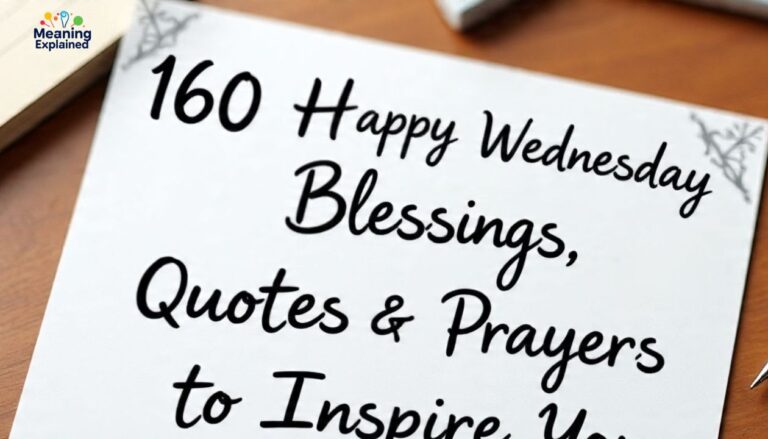 Meaning
Explained
160 Happy Wednesday
Blessings,
Quotes & Prayers
to Inspire